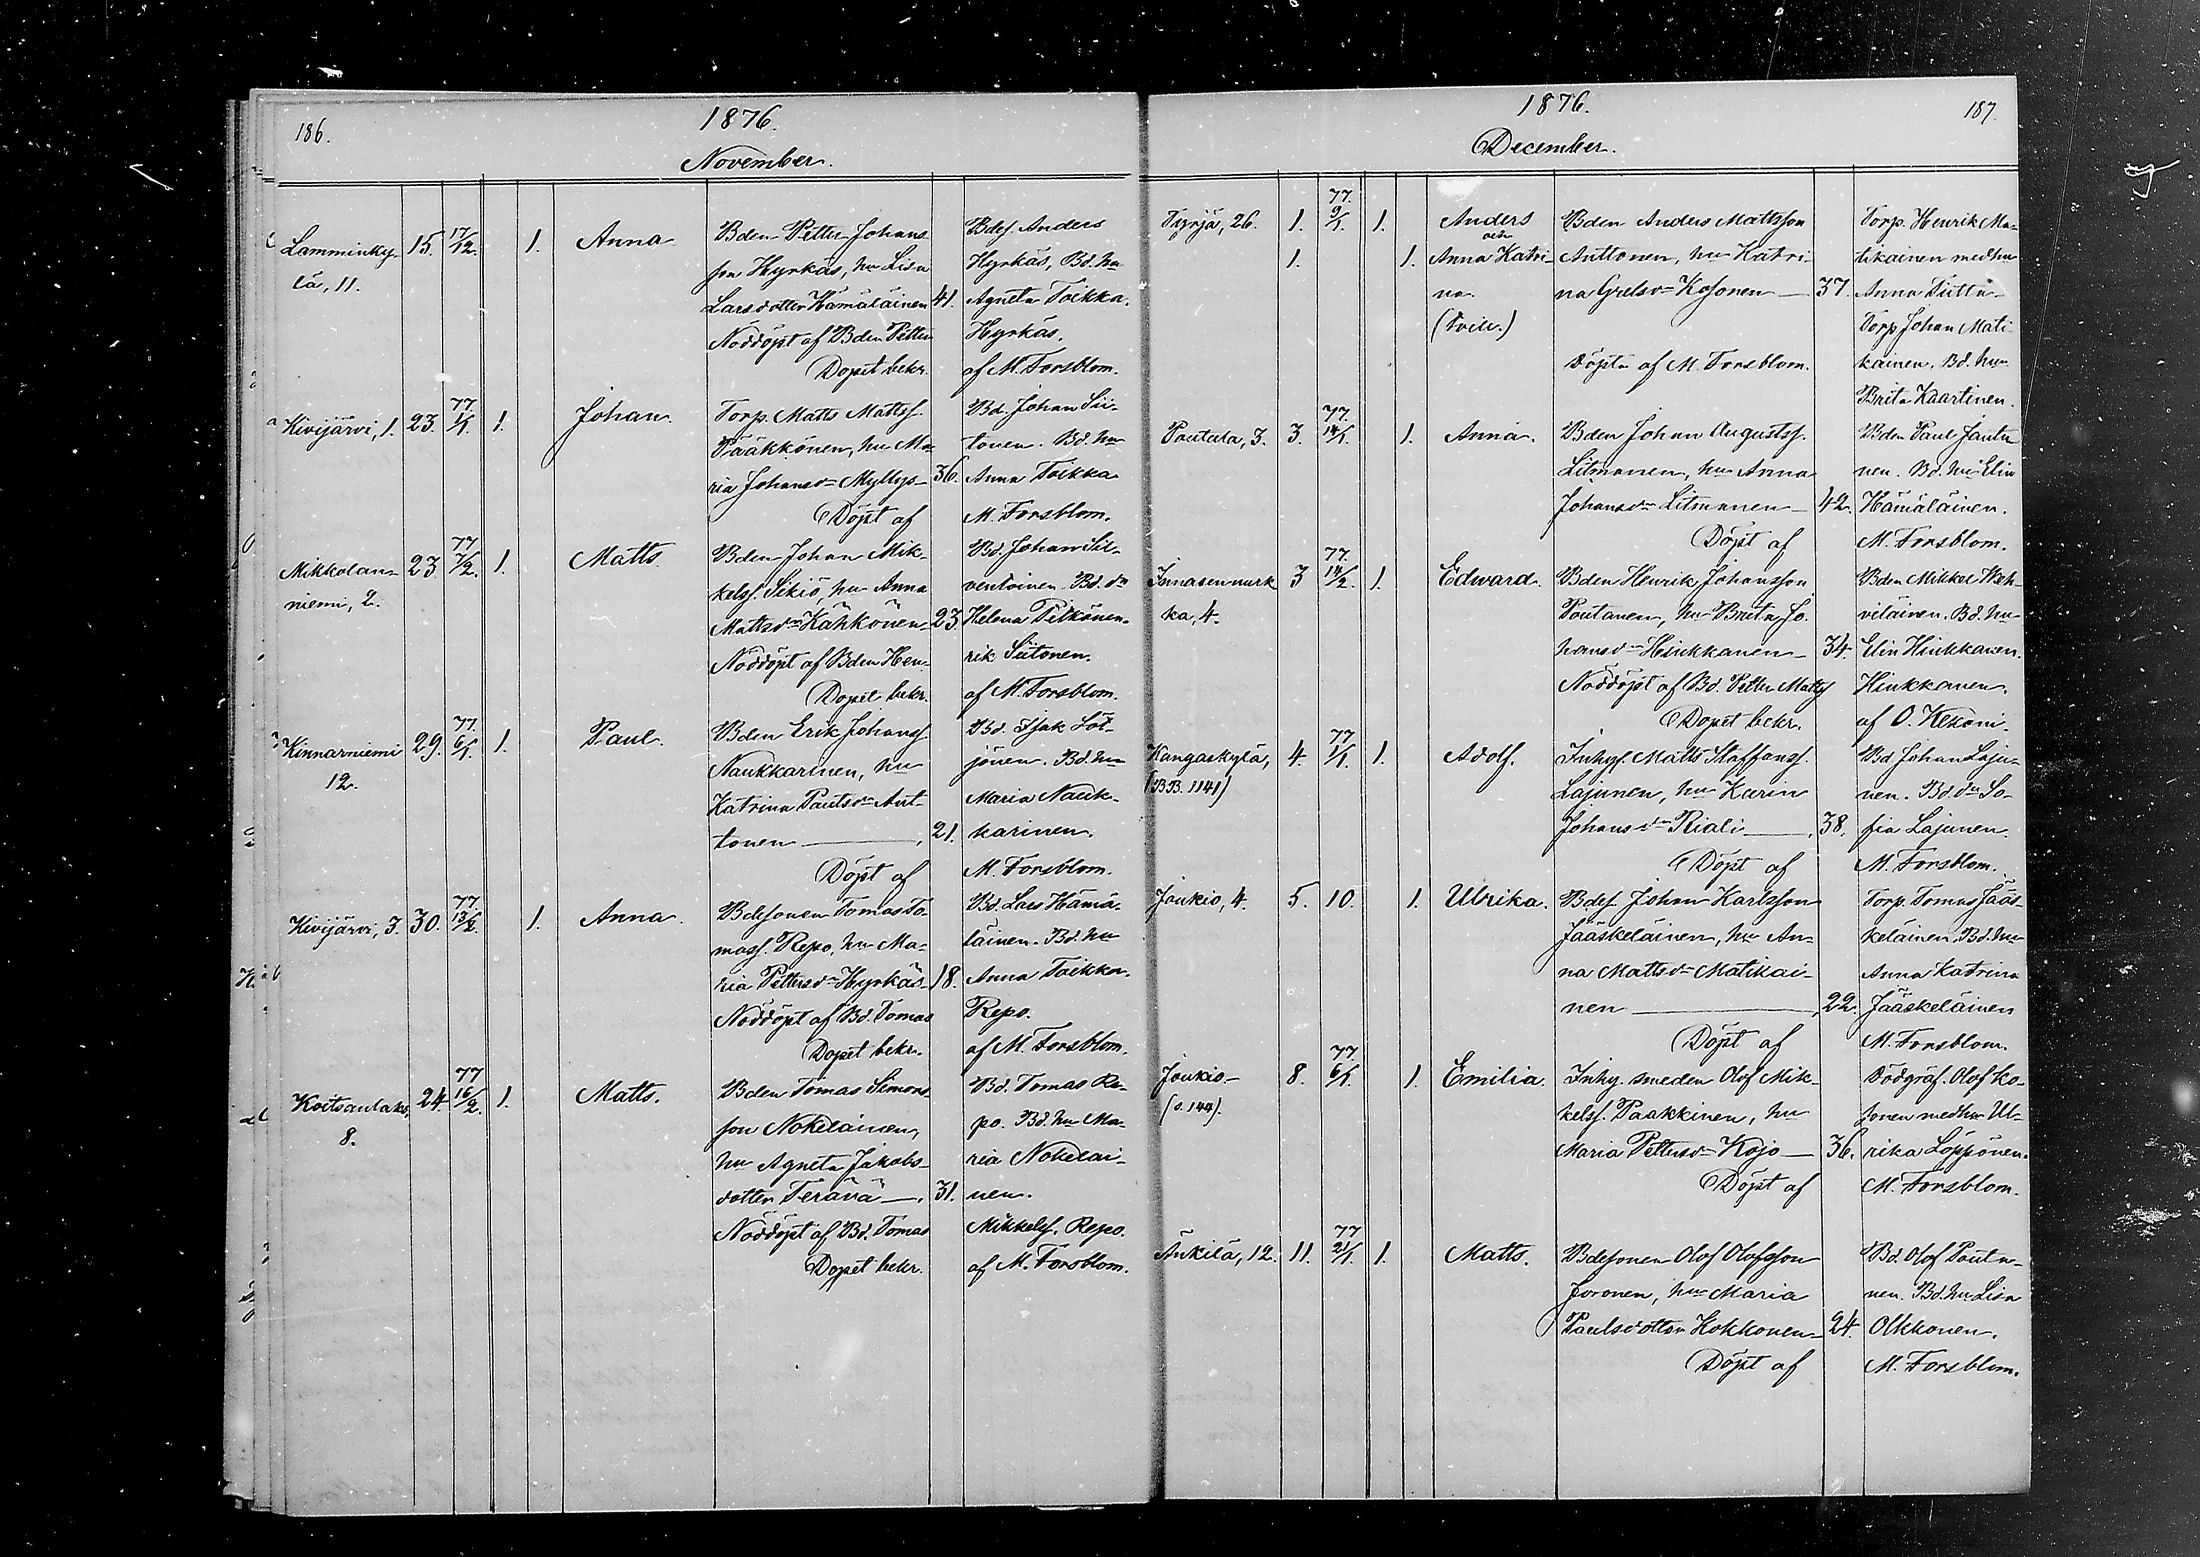 186.
1876.
November.
Lamminky-
lä, 11.
15.
17/12.
1.
Anna
Bden Petter Johans
son Hyrkäs, hu Lisa
Larsdotter Hämäläinen
41.
Nöddöpt af Bden Petter
Dopet bekr.
Bdes. Anders
Hyrkäs, Bd. hu
Agneta Toikka.
Hyrkäs.
af M. Forsblom.
Kivijärvi, 1.
23.
77
1/1.
1.
Johan.
Torp. Matts Mattss.
Pääkkönen, hu Ma-
ria Johansdr Myllys
36.
Döpt af
Bd. Johan Sii-
tonen. Bd. hu
Anna Toikka
M. Forsblom.
Mikkolan-
niemi, 2.
23.
77
1/2.
1.
Matts.
Bden Johan Mik-
kelss. Sikiö, hu Anna
Mattsdr Kähkönen
23
Nöddöpt af Bden Hen-
Dopet bekr.
Bd. Johan Sil-
ventoinen. Bd. dr
Helena Pitkänen.
rik Siitonen.
af M. Forsblom.
Kinnarniemi
12.
29.
77.
6/1.
1.
Paul.
Bden Erik Johanss.
Naukkarinen, hu
Katrina Paulsdr Ant-
tonen
21.
Döpt af
Bd. Isak Löt-
jönen. Bd. hu
Maria Nauk-
karinen.
M. Forsblom.
Kivijärvi, 3.
30.
77.
13/2.
1.
Anna.
Bdesonen Tomas To-
mass. Repo, hu Ma-
ria Pettersdr Hyrkäs
18.
Nöddöpt af Bd. Tomas
Dopet bekr.
Bd. Lars Hämä-
läinen. Bd. hu
Anna Toikka.
Repo.
af M. Forsblom.
Koitsanlaks,
8.
24.
77
16/2.
1.
Matts.
Bden Tomas Simons-
son Nokelainen,
hu Agneta Jakobs-
dotter Terävä
31.
Nöddöpt af Bd. Tomas
Dopet bekr.
Bd. Tomas Re-
po. Bd. hu Ma-
ria Nokelai-
nen.
Mikkelss. Repo.
af M. Forsblom.
1876.
187.
December.
Tyrjä, 26.
1.
1.
77.
9/1.
1.
1.
Anders
och
Anna Katri-
na.
(tvill.)
Bden Anders Mattsson
Anttonen, hu Katri-
na Grelsdr Kosonen
37.
Döpta af M. Forsblom.
Torp. Henrik Ma-
tikainen med hu
Anna Tutta-
Torp Johan Mati-
kainen, Bd. hu
Brita Kaartinen.
Poutala, 3.
3.
77.
14/1.
1.
Anna.
Bden Johan Augustss.
Litmanen, hu Anna
Johansdr Litmanen
42.
Döpt af
Bden Paul Jantu-
nen. Bd. hu Elin
Hämäläinen.
M. Forsblom.
Innasennurk
ka, 4.
3
77.
14/2.
1.
Edward.
Bden Henrik Johansson
Poutanen, hu Brita Jo-
hansdr Hinkkanen
34.
Nöddöpt af Bd. Petter Matts
Dopet bekr.
Bden Mikkel Weh-
viläinen. Bd. hu
Elin Hinkkanen.
Hinkkanen.
af O. Kekoni.
Kangaskylä,
(BB. 1141)
4.
77
1/1.
1.
Adolf.
Inhys. Matts Staffanss.
Lajunen, hu Karin
Johansdr Riali
38.
Döpt af
Bd Johan Laju-
nen. Bd. dr So-
fia Lajunen.
M. Forsblom.
Joukio, 4.
5.
10.
1.
Ulrika.
Bdes. Johan Karlsson
Jääskeläinen, hu An-
na Mattsdr Matikai-
nen
22.
Döpt af
Torp. Tomas Jääs-
keläinen. Bd. hu
Anna Katrina
Jääskeläinen
M. Forsblom.
Joukio
(s. 144).
8.
77
6/1.
1.
Emilia.
Inhy. smeden Olof Mik-
kelss. Paakkinen, hu
Maria Pettersdr Kojo
36.
Döpt af
Dödgräf. Olof Ko-
sonen med hu Ul-
rika Löppönen.
M. Forsblom.
Änkilä, 12.
11.
77
21/1.
1.
Matts.
Bdesonen Olof Olofsson
Joronen, hu Maria
Paulsdotter Kokkonen
24.
Döpt af
Bd. Olof Pouta-
nen. Bd. hu Lisa
Olkkonen.
M. Forsblom.